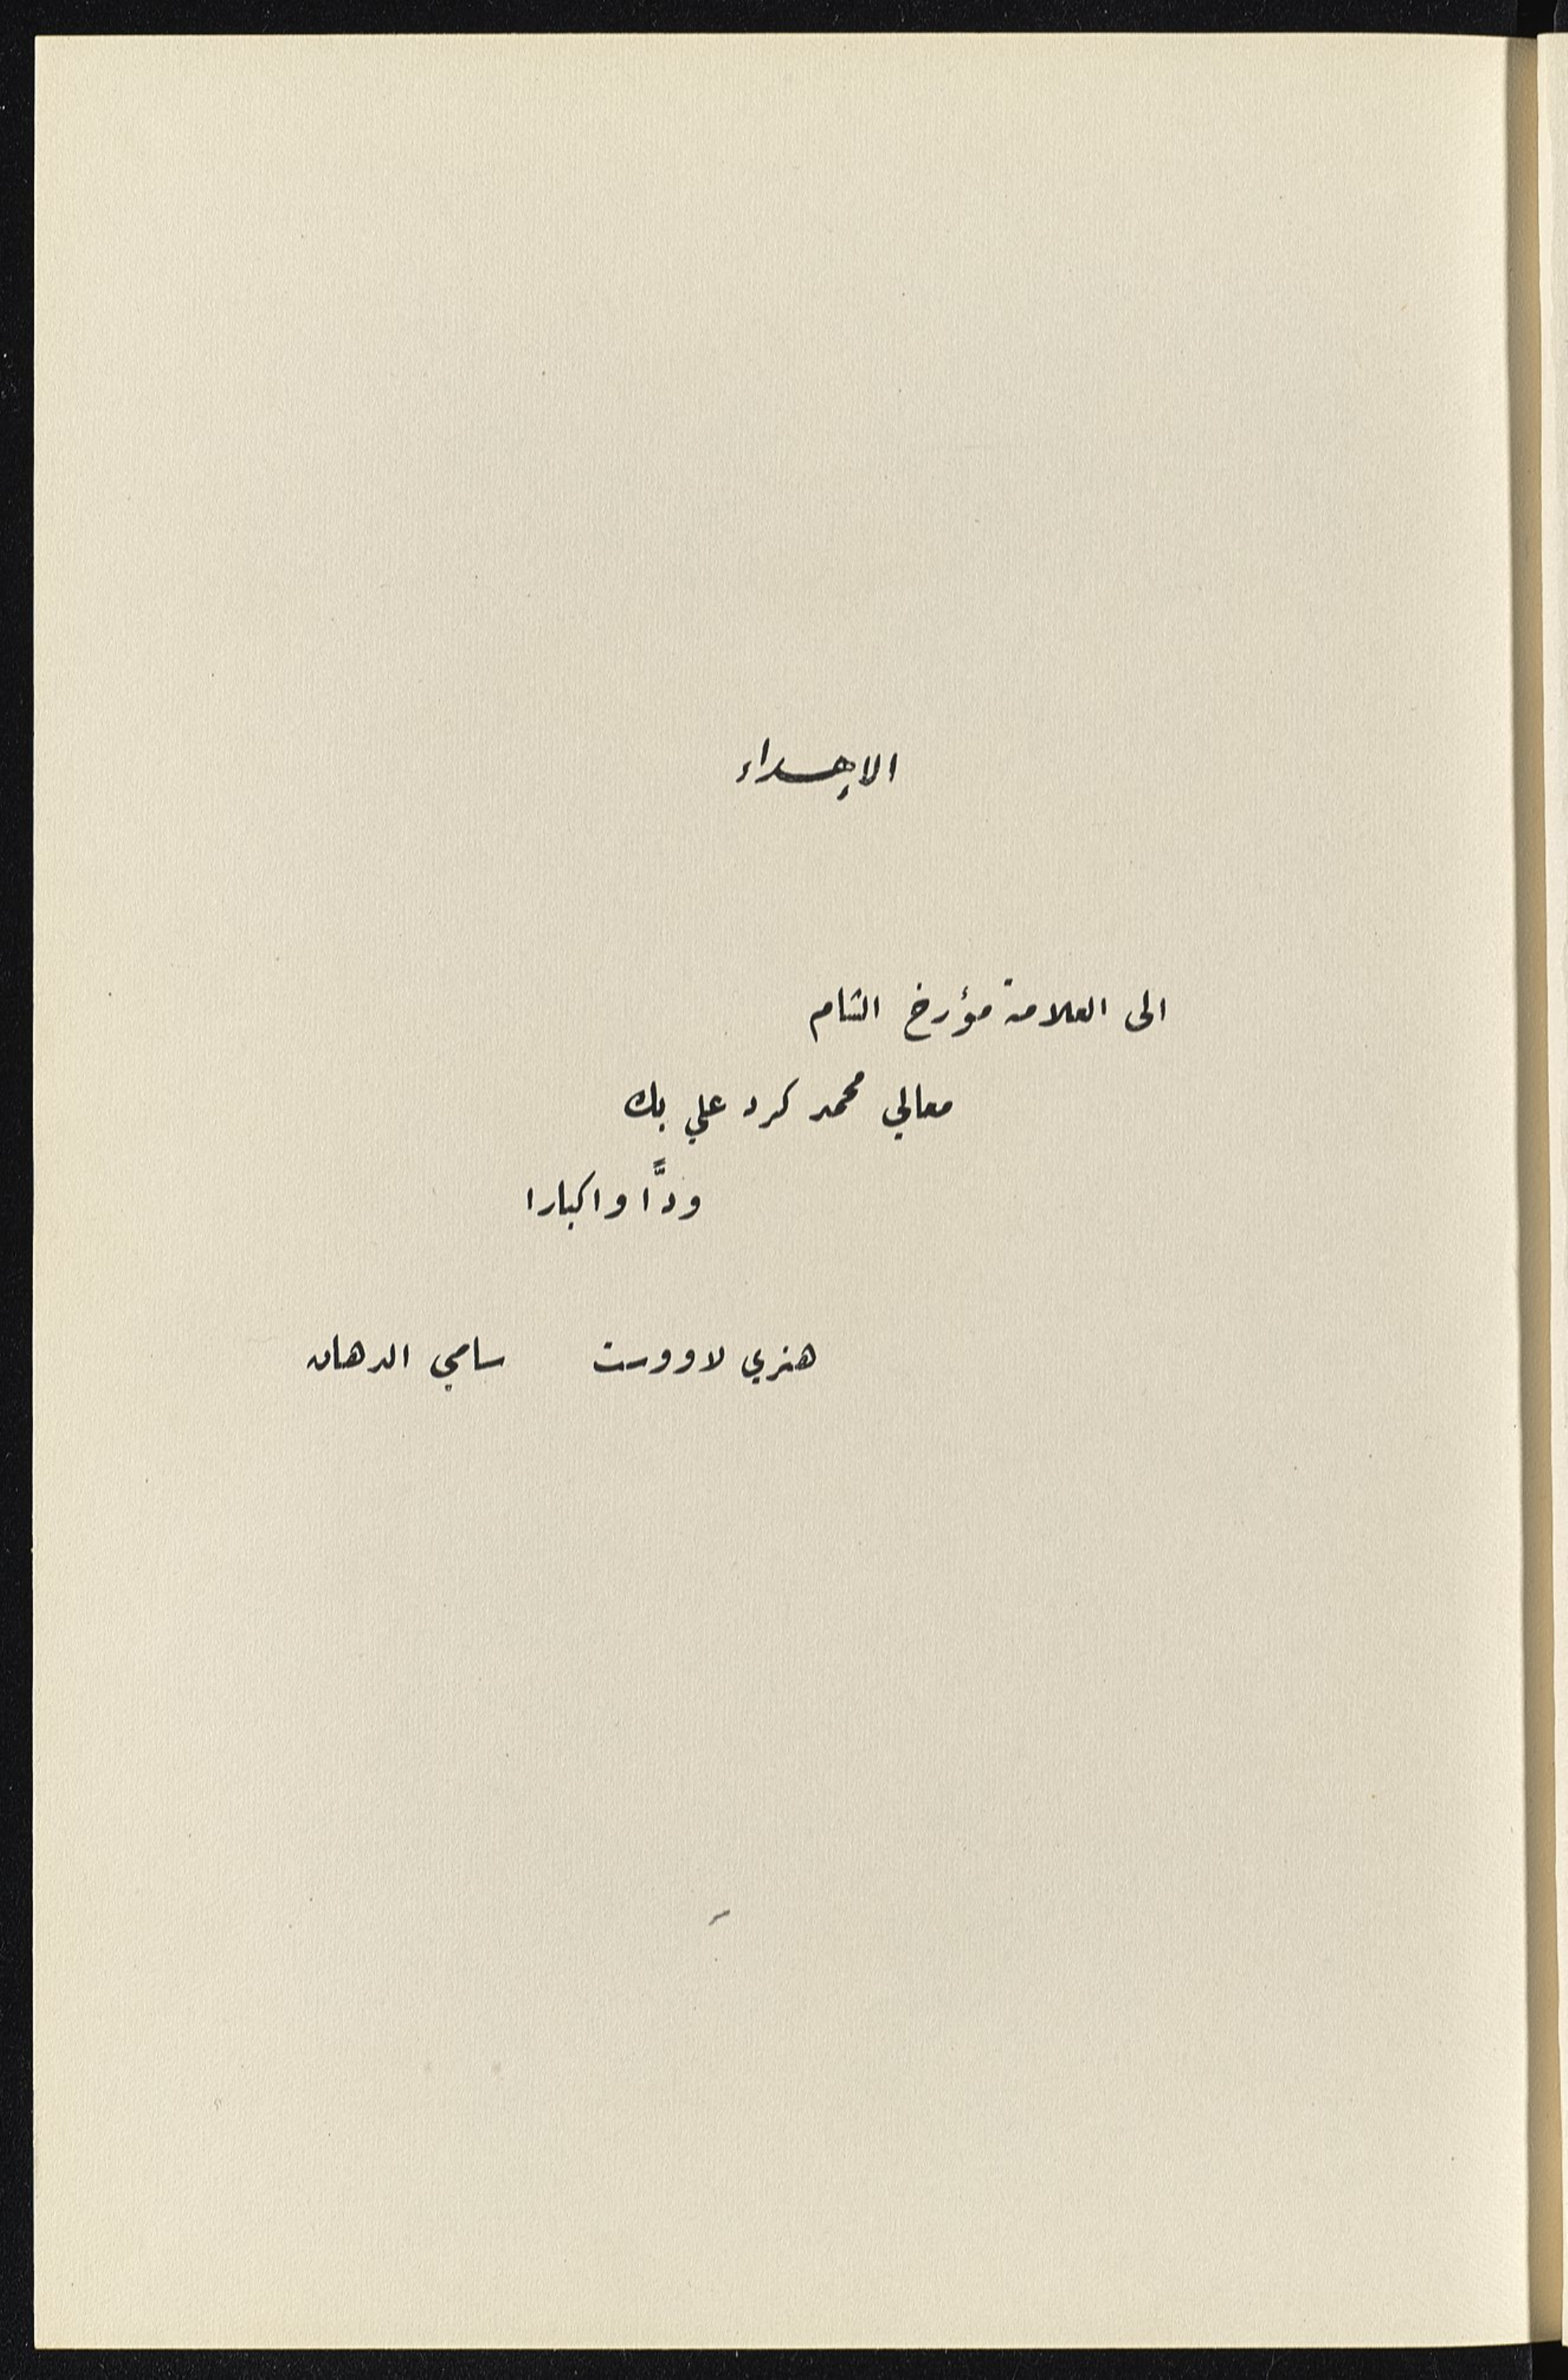 الاهداء
الى العلامة مؤرخ الشام
معالي محمد كرد علي بك
ودًّا واكبارا
هنري لاووست سامي الدهان